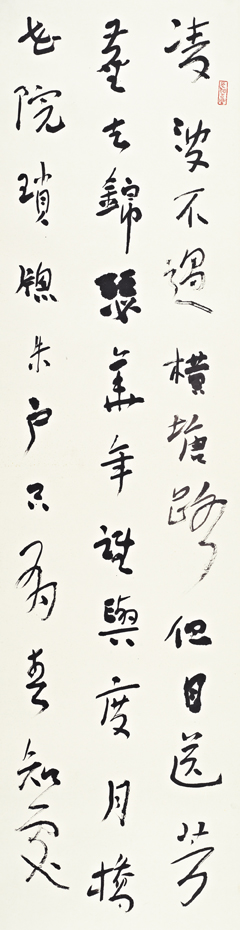 凌波不過橫塘路但目送芳
塵去錦瑟華年誰與度月橋
花院瑣牕朱户只有春知處